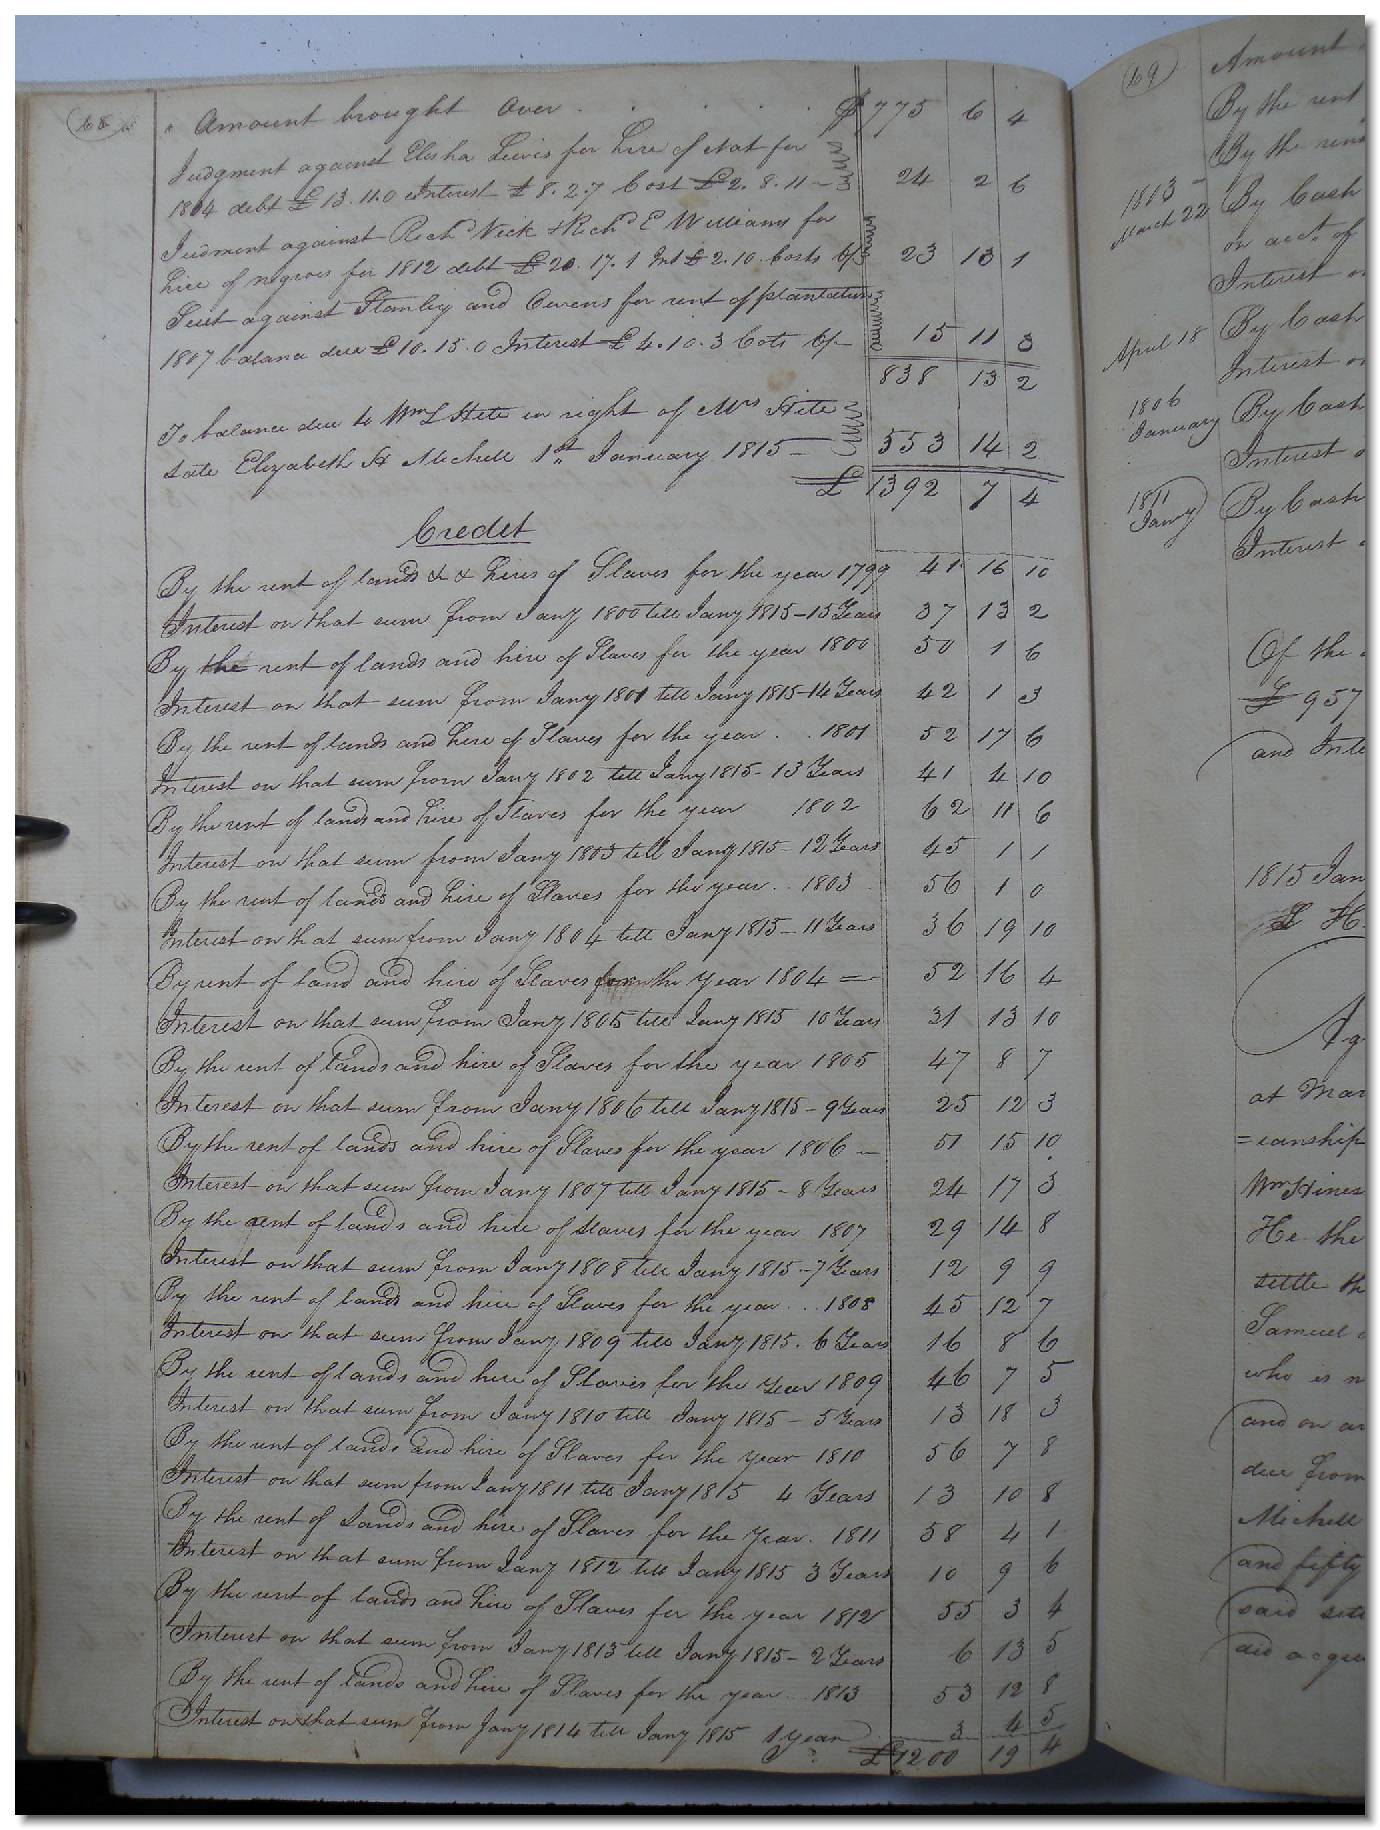 68
" Amount brought over . . . . . £ 775 6 4
Judgment against Elisha Lewis for hire of Nat for
1804 debt £ 13.11.0 Interest £ 8.2.7 Cost £ 2.8.11 – 24 2 6
Judment against Richd Vick & Richd E Williams for
hire of negroes for 1812 debt £ 20.17.1 Int £ 2.10. Costs 6/ 23 13 1
Suit against Stanley and Owens for rent of plantation
1807 balance due £ 10.15.0 Interest £ 4.10.3 Cots 6/– 15 11 3
838 13 2
To balance due to Wm L Hite in right of Mrs Hite
late Elizabeth H Michell 1st January 1815 – 553 14 2
£ 1392 7 4
Credit
By the rent of lands & & hires of Slaves for the year 1799 41 16 10
Interest on that sum from Jany 1800 till Jany 1815 – 15 Years 37 13 2
By the rent of lands and hire of Slaves for the year 1800 50 1 6
Interest on that sum from Jany 1801 till Jany 1815 – 14 Years 42 1 3
By the rent of lands and hire of Slaves for the year . . 1801 52 17 6
Interest on that sum from Jany 1802 till Jany 1815 – 13 Years 41 4 10
By the rent of lands and hire of Slaves for the year 1802 62 11 6
Interest on that sum from Jany 1803 till Jany 1815 – 12 Years 45 1 1
By the rent of lands and hire of Slaves for the year . . 1803 56 1 0
Interest on that sum from Jany 1804 till Jany 1815 – 11 Years 36 19 10
By rent of land and hire of Slaves for the Year 1804 = 52 16 4
Interest on that sum from Jany 1805 till Jany 1815 10 Years 31 13 10
By the rent of lands and hire of Slaves for the year 1805 47 8 7
Interest on that sum from Jany 1806 till Jany 1815 – 9 Years 25 12 3
By the rent of lands and hire of Slaves for the year 1806 – 51 15 10
Interest on that sum from Jany 1807 till Jany 1815 – 8 Years 24 17 3
By the rent of lands and hire of slaves for the year 1807 29 14 8
Interest on that sum from Jany 1808 till Jany 1815 – 7 Years 12 9 9
By the rent of lands and hire of Slaves for the year . . . 1808 45 12 7
Interest on that sum from Jany 1809 till Jany 1815 . 6 Years 16 8 6
By the rent of lands and hire of Slaves for the Year 1809 46 7 5
Interest on that sum from Jany 1810 till Jany 1815 – 5 Years 13 18 3
By the rent of lands and hire of Slaves for the Year 1810 56 7 8
Interest on that sum from Jany 1811 till Jany 1815 4 Years 13 10 8
By the rent of Lands and hire of Slaves for the Year . 1811 58 4 1
Interest on that sum from Jany 1812 till Jany 1815 3 Years 10 9 6
By the rent of lands and hire of Slaves for the year 1812 55 3 4
Interest on that sum from Jany 1813 till Jany 1815 – 2 Years 6 13 5
By the rent of lands and hire of Slaves for the year . . 1813 53 12 8
Interest on that sum from Jany 1814 till Jany 1815 1 year 3 4 5
£ 1200 19 4
69
Amount
By the rent
By the rent
1803 –
March 22 By Cash
on acct. of
Interest on
April 18 By Cash
Interest on
1806
January By Cash
Interest o
1811
Jany By Cash
Interest
Of the
£ 957
and Inte
1815 Jan
H.
Ag
at Mar
=ianship
Wm Hines
He the
settle th
Samuel
who is n
and on ac
due from
Michell
and fifty
said sett
did acqu